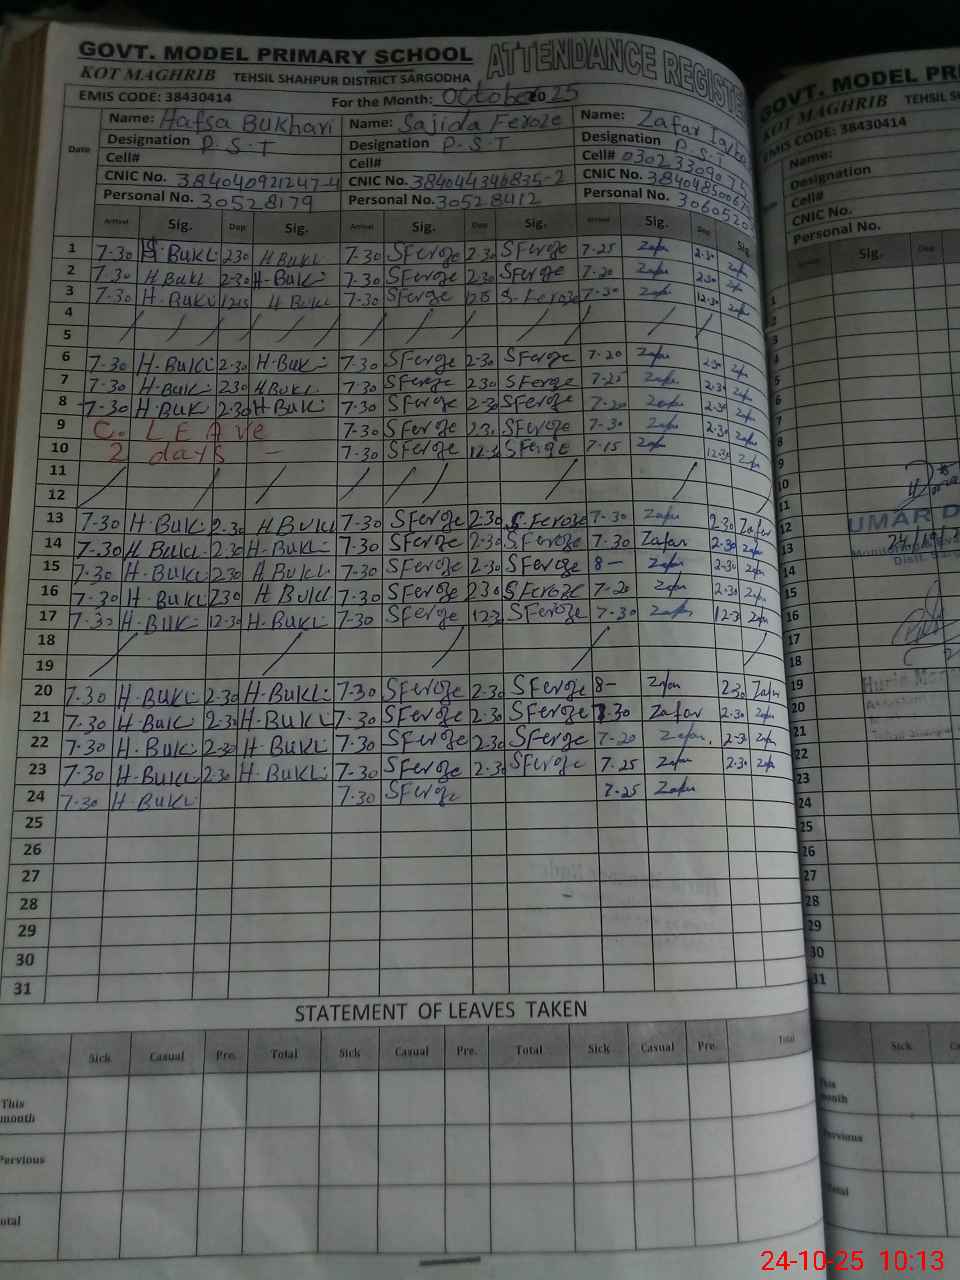 GOVT. MODEL PRIMARY SCHOOL ATTENDANCE REGISTE
KOT MAGHRIB TEHSIL SHAHPUR DISTRICT SARGODHA
EMIS CODE: 38430414 For the Month: October 2025
Date Name: Hafsa Bukhari Name: Sajida Feroze Name: Zafar
Designation P.S.T Designation P.S.T Designation P.S.T
Cell# Cell# Cell#
CNIC No. CNIC No. CNIC No.
Personal No. 30528179 Personal No. 30528412 Personal No.
Arrival Sig. Dep Sig. Arrival Sig. Dep Sig. Arrival Sig. Dep Sig.
1 7-30 H.BUKL 2.30 H BUKL 7-30 SFeroze 2.30 SFeroze 7-25 Zafar 2.30 Zafar
2 7-30 H BUKL 2-30 H-BUKL 7-30 SFeroze 2.30 SFeroze 7-20 Zafar 2.30 Zafar
3 7-30 H.BUKL H BUKL 7-30 SFeroze S.Feroze 7-30 Zafar 12.30 Zafar
4
5
6 7-30 H.BUKL 2-30 H-BUKL 7-30 SFeroze 2-30 SFeroze 7-20 Zafar 2.30 Zafar
7 7-30 H.BUKL 2.30 H BUKL 7-30 SFeroze 2.30 SFeroze 7-25 Zafar 2.30 Zafar
8 7-30 H.BUK 2.30 H-BUK 7-30 SFeroze 2-30 SFeroze 7-20 Zafar 2.30 Zafar
9 C. LEAVe 7.30 SFeroze 2.30 SFeroze 7-30 Zafar 2.30 Zafar
10 2 days 7-30 SFeroze 12.30 SFeroze 7-15 Zafar 12.30 Zafar
11
12
13 7-30 H.BUK 2-30 H BUKL 7-30 SFeroze 2-30 S.Feroze 7-30 Zafar 2.30 Zafar
14 7-30 H BUKL 2.30 H-BUKL 7-30 SFeroze 2-30 S.Feroze 7.30 Zafar 2.30 Zafar
15 7-30 H.BUKL 2.30 H BUKL 7-30 SFeroze 2-30 SFeroze 8- Zafar 2-30 Zafar
16 7-30 H.BUKL 2.30 H BUKL 7-30 SFeroze 2.30 SFeroze 7-20 Zafar 2.30 Zafar
17 7-30 H-BUK 12-30 H-BUKL 7-30 SFeroze 12.3 SFeroze 7-30 Zafar 12.3 Zafar
18
19
20 7-30 H-BUKL 2-30 H-BUKL 7-30 SFeroze 2-30 SFeroze 8- Zafar 2.30 Zafar
21 7-30 H-BUKL 2-30 H-BUKL 7-30 SFeroze 2-30 SFeroze 7.30 Zafar 2.30 Zafar
22 7-30 H-BUKL 2-30 H-BUKL 7-30 SFeroze 2-30 SFeroze 7-20 Zafar 2-30 Zafar
23 7-30 H-BUKL 2.30 H-BUKL 7-30 SFeroze 2-30 SFeroze 7-25 Zafar 2.30 Zafar
24 7-30 H-BUKL 7-30 SFeroze 7-25 Zafar
25
26
27
28
29
30
31
STATEMENT OF LEAVES TAKEN
Sick Casual Pre. Total Sick Casual Pre. Total Sick Casual Pre. Total
This month
Pervious
otal
GOVT. MODEL PRI
KOT MAGHRIB TEHSIL SHA
EMIS CODE: 38430414
Name:
Designation
Cell#
CNIC No.
Personal No.
Sig.
1
2
3
4
5
6
7
8
9
10
11
12 UMAR D
13
14
15
16
17
18
19
20
21
22
23
24
25
26
27
28
29
30
31
Sick
his month
Pervious
otal
24-10-25 10:13